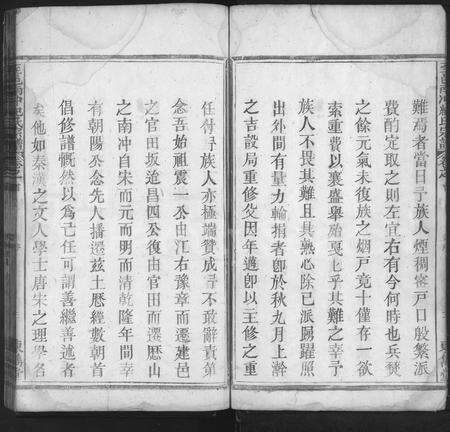 難焉者當日予族人煙稠密戶口殷繁派
費酌定取之則左宜右有今何時也兵燹
之餘元氣未復族之烟戶竟十僅存一欲
索重費以襄盛舉殆戛戛乎其難之幸予
族人不畏其難且其熱心除已派踴躍照
出外間有量力輸捐者卽於秋九月上澣
之吉設局重修爰因年邁卽以主修之重
任付予族人亦極端贊成予不敢辭責第
念吾始祖震一公由江右豫章而遷建邑
之官田坂迨昌四公復由官田而遷歷山
之南冲自宋而元而明而清乾隆年間幸
有朝陽公念先人播遷茲土歷經數朝首
倡修譜慨然以為己任可謂善繼善述者
矣他如秦漢之文人學士唐宋之理學名